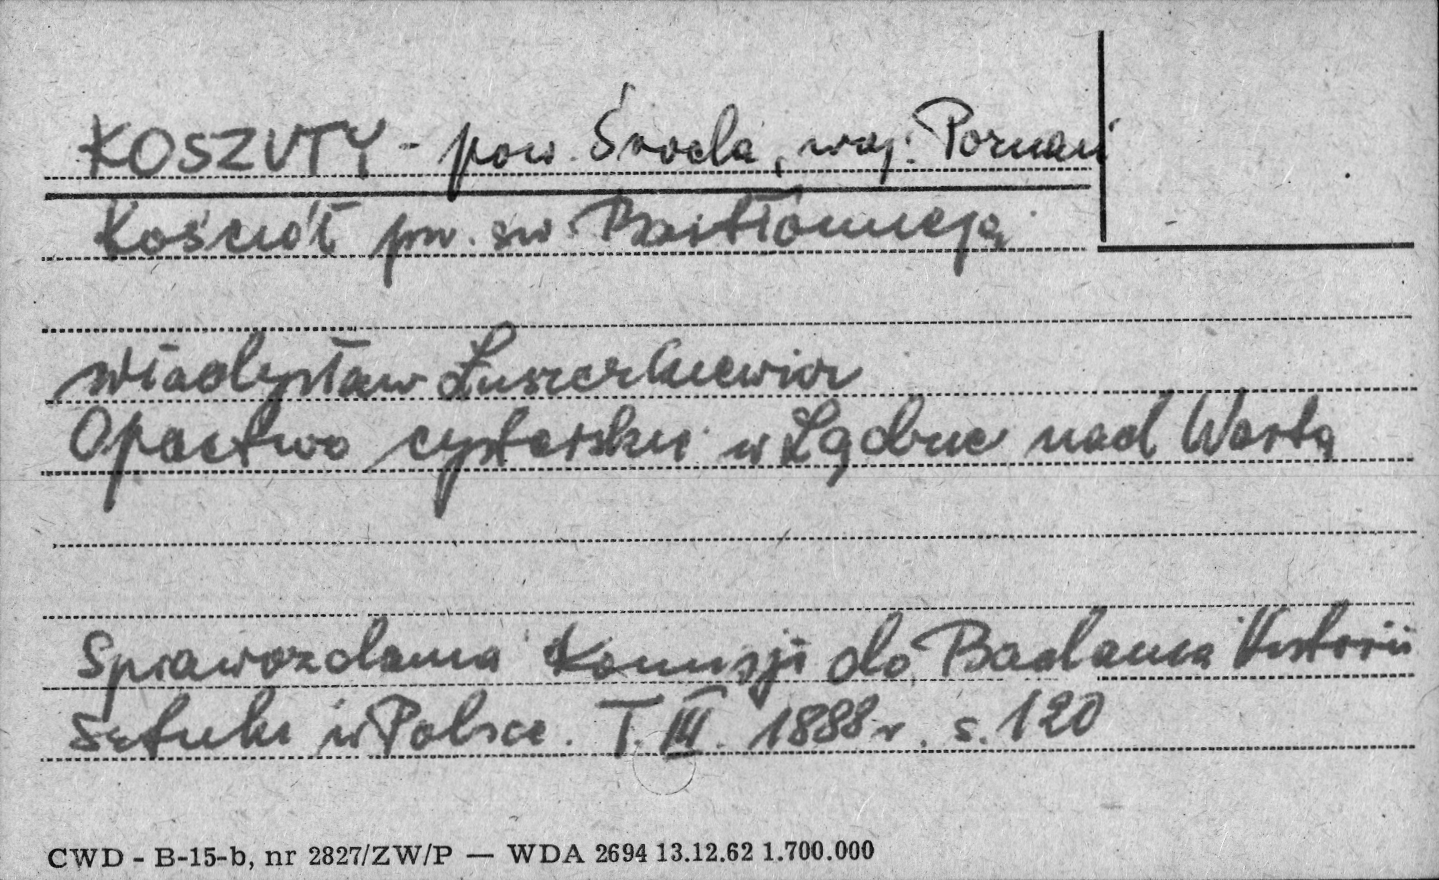 KOSZUTY - pow. Środa, woj. Poznań
Kościół pw. św. Bartłomieja
Władysław Łuszczkiewicz
Opactwo cysterskie w Lądzie nad Wartą
Sprawozdania Komisji do Badania Historii
Sztuki w Polsce. T. III. 1888 r. s. 120
CWD - B-15-b, nr 2827/ZW/P — WDA 2694 13.12.62 1.700.000